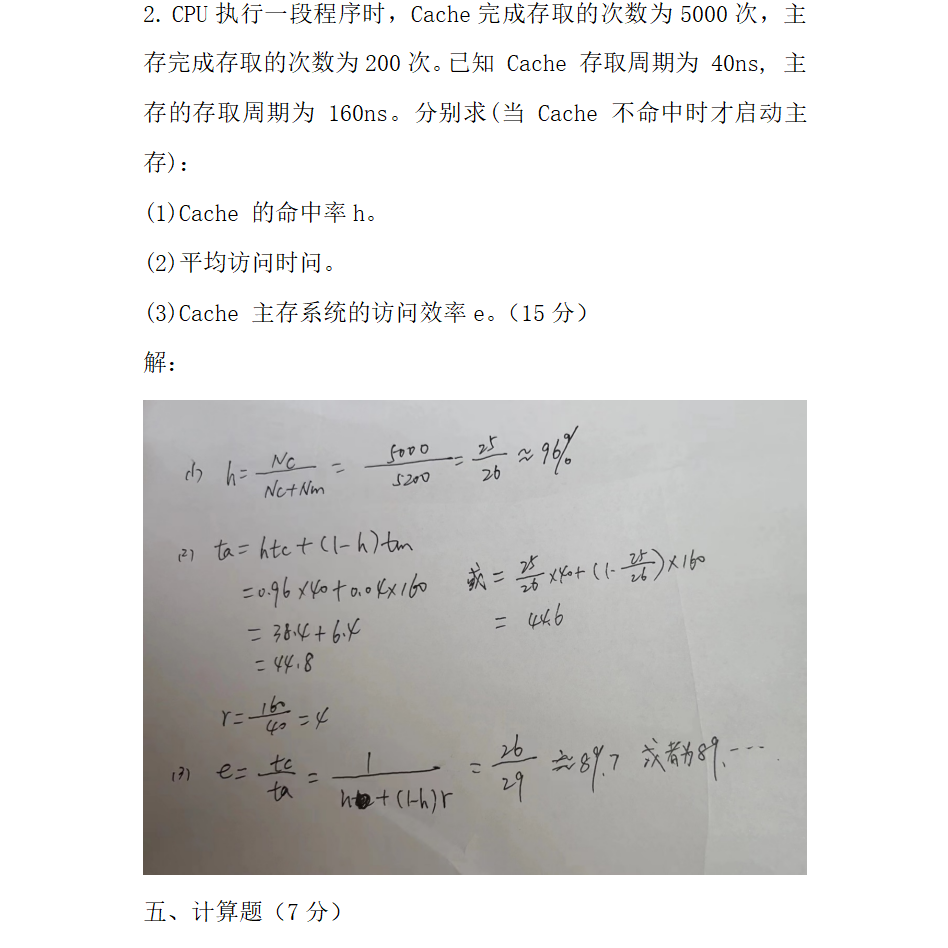 2. CPU执行一段程序时，Cache完成存取的次数为5000次，主
存完成存取的次数为200次。已知 Cache 存取周期为 40ns, 主
存的存取周期为 160ns。分别求(当 Cache 不命中时才启动主
存):
(1)Cache 的命中率h。
(2)平均访问时问。
(3)Cache 主存系统的访问效率e。（15分）
解:
(1) h = Nc/(Nc+Nm) = 5000/5200 = 25/26 ≈ 96%
(2) ta = htc + (1-h)tm
= 0.96×40+0.04×160
= 38.4+6.4
= 44.8
或 = 25/26 ×40+(1-25/26)×160
= 44.6
r = 160/40 = 4
(3) e = tc/ta = 1/(h+(1-h)r) = 26/29 ≈ 89.7 或者为89.…
五、计算题（7分）